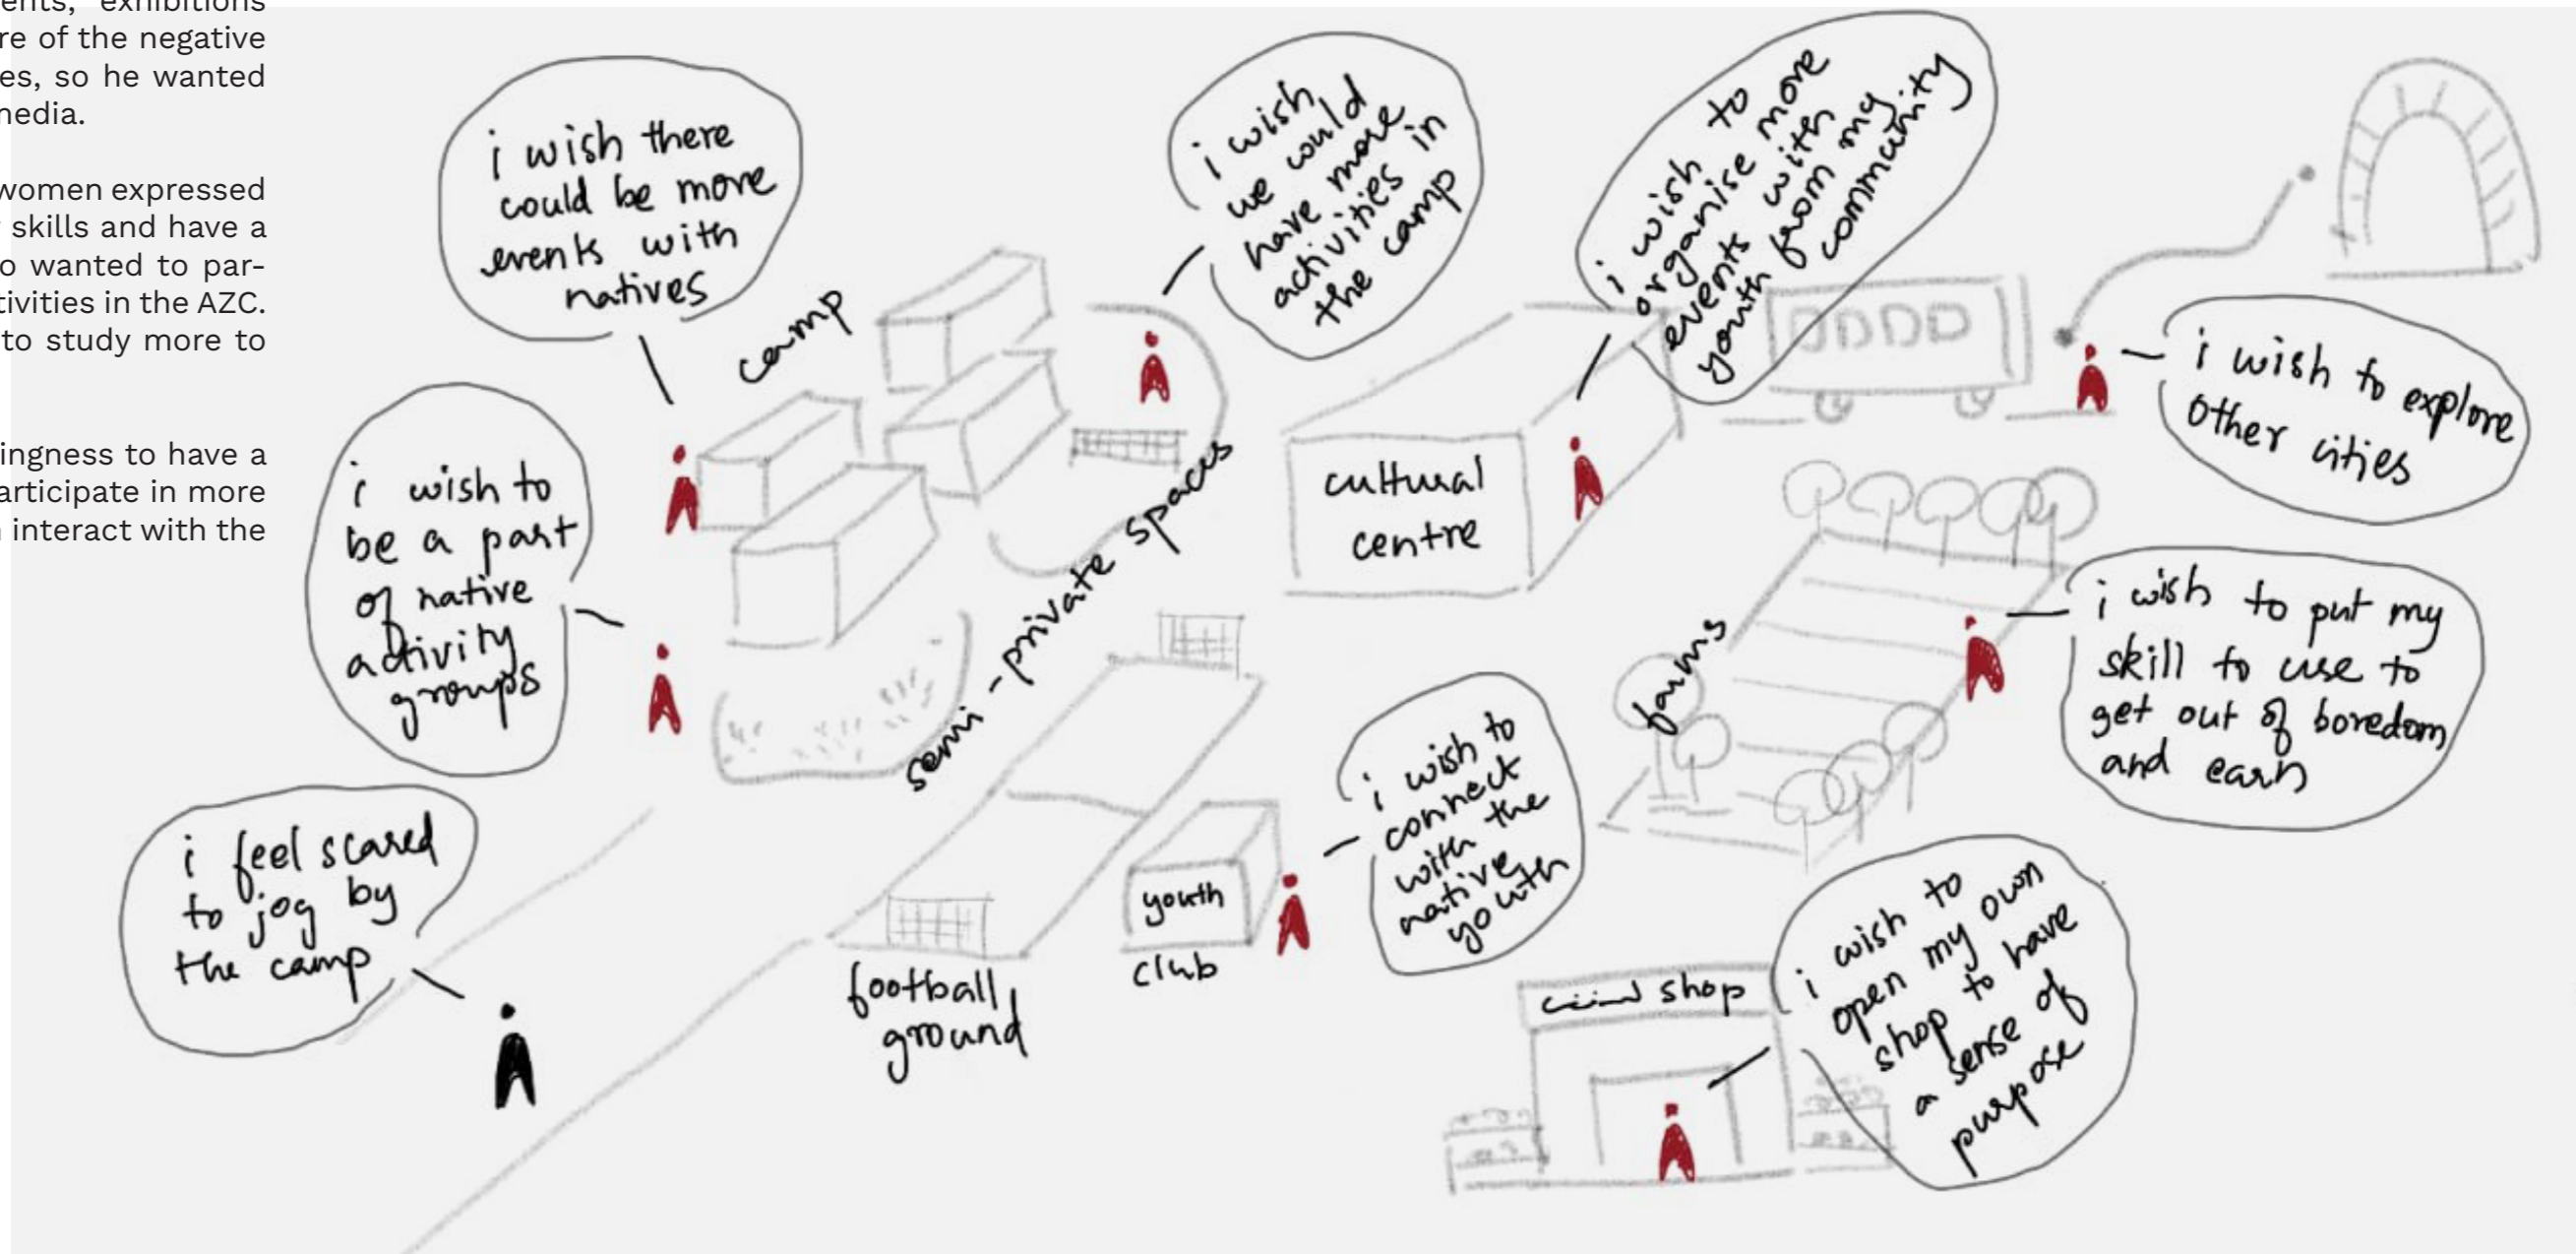 ents, exhibitions
re of the negative
es, so he wanted
nedia.
women expressed
skills and have a
o wanted to par-
tivities in the AZC.
to study more to
ingness to have a
articipate in more
interact with the
i wish there
could be more
events with
natives
i wish
we could
have more
activities in
the camp
i wish to
organise more
events with
youth from my
community
camp
i wish to explore
other cities
i wish to
be a part
of native
activity
groups
semi-private spaces
cultural
centre
farms
i wish to put my
skill to use to
get out of boredom
and earn
i feel scared
to jog by
the camp
football
ground
youth
club
i wish to
connect
with the
native
youth
shop
i wish to
open my own
shop to have
a sense of
purpose